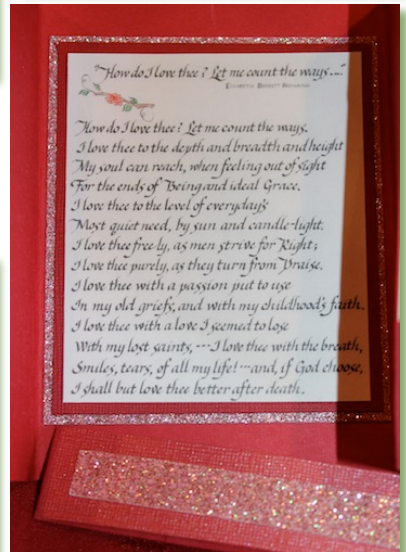 "How do I love thee? Let me count the ways..."
ELIZABETH BARRETT BROWNING
How do I love thee? Let me count the ways.
I love thee to the depth and breadth and height
My soul can reach, when feeling out of sight
For the ends of Being and ideal Grace.
I love thee to the level of everyday's
Most quiet need, by sun and candle-light.
I love thee freely, as men strive for Right;
I love thee purely, as they turn from Praise.
I love thee with a passion put to use
In my old griefs, and with my childhood's faith.
I love thee with a love I seemed to lose
With my lost saints, --- I love thee with the breath,
Smiles, tears, of all my life! --- and, if God choose,
I shall but love thee better after death.